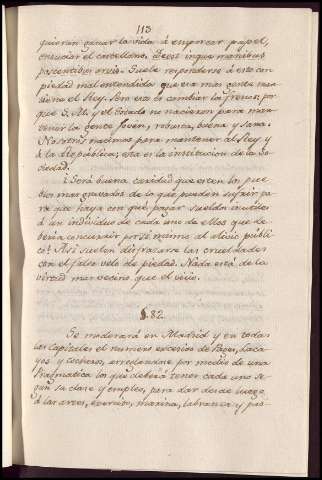 113
quieran ganar la vida á emporcar papel,
ensuciar el castellano.
pascentibus Suele responderse á esto con
piedad mal entendida que era mas gente man
tiene el Rey. Pero eso es cambiar los frenos, por
que S. M. y el Estado no nacieron para man-
tener la gente joven, robusta, buena y sana.
Nosotros nacimos para mantener al Rey y
á la República; esta es la institucion de la So-
ciedad.
¿Será buena caridad que esten los pue-
blos mas gravados de lo que pueden sufrir pa-
ra que haya con que pagar sueldo inutil
á un individuo de cada uno de ellos que de-
beria concurrir por sí mismo al alivio públi-
co? Así suelen disfrazarse las crueldades
con el falso velo de piedad. Nada está de la
virtud mas vecino que el vicio.
§.82.
Se moderará en Madrid y en todas
las Capitales el número excesivo de Pages, laca-
yos y cocheros, arreglandose por medio de una
Pragmatica los que deberá tener cada uno se-
gun su clase y empleo, para dar desde luego
á las artes, exercito, marina, labranza y pas-